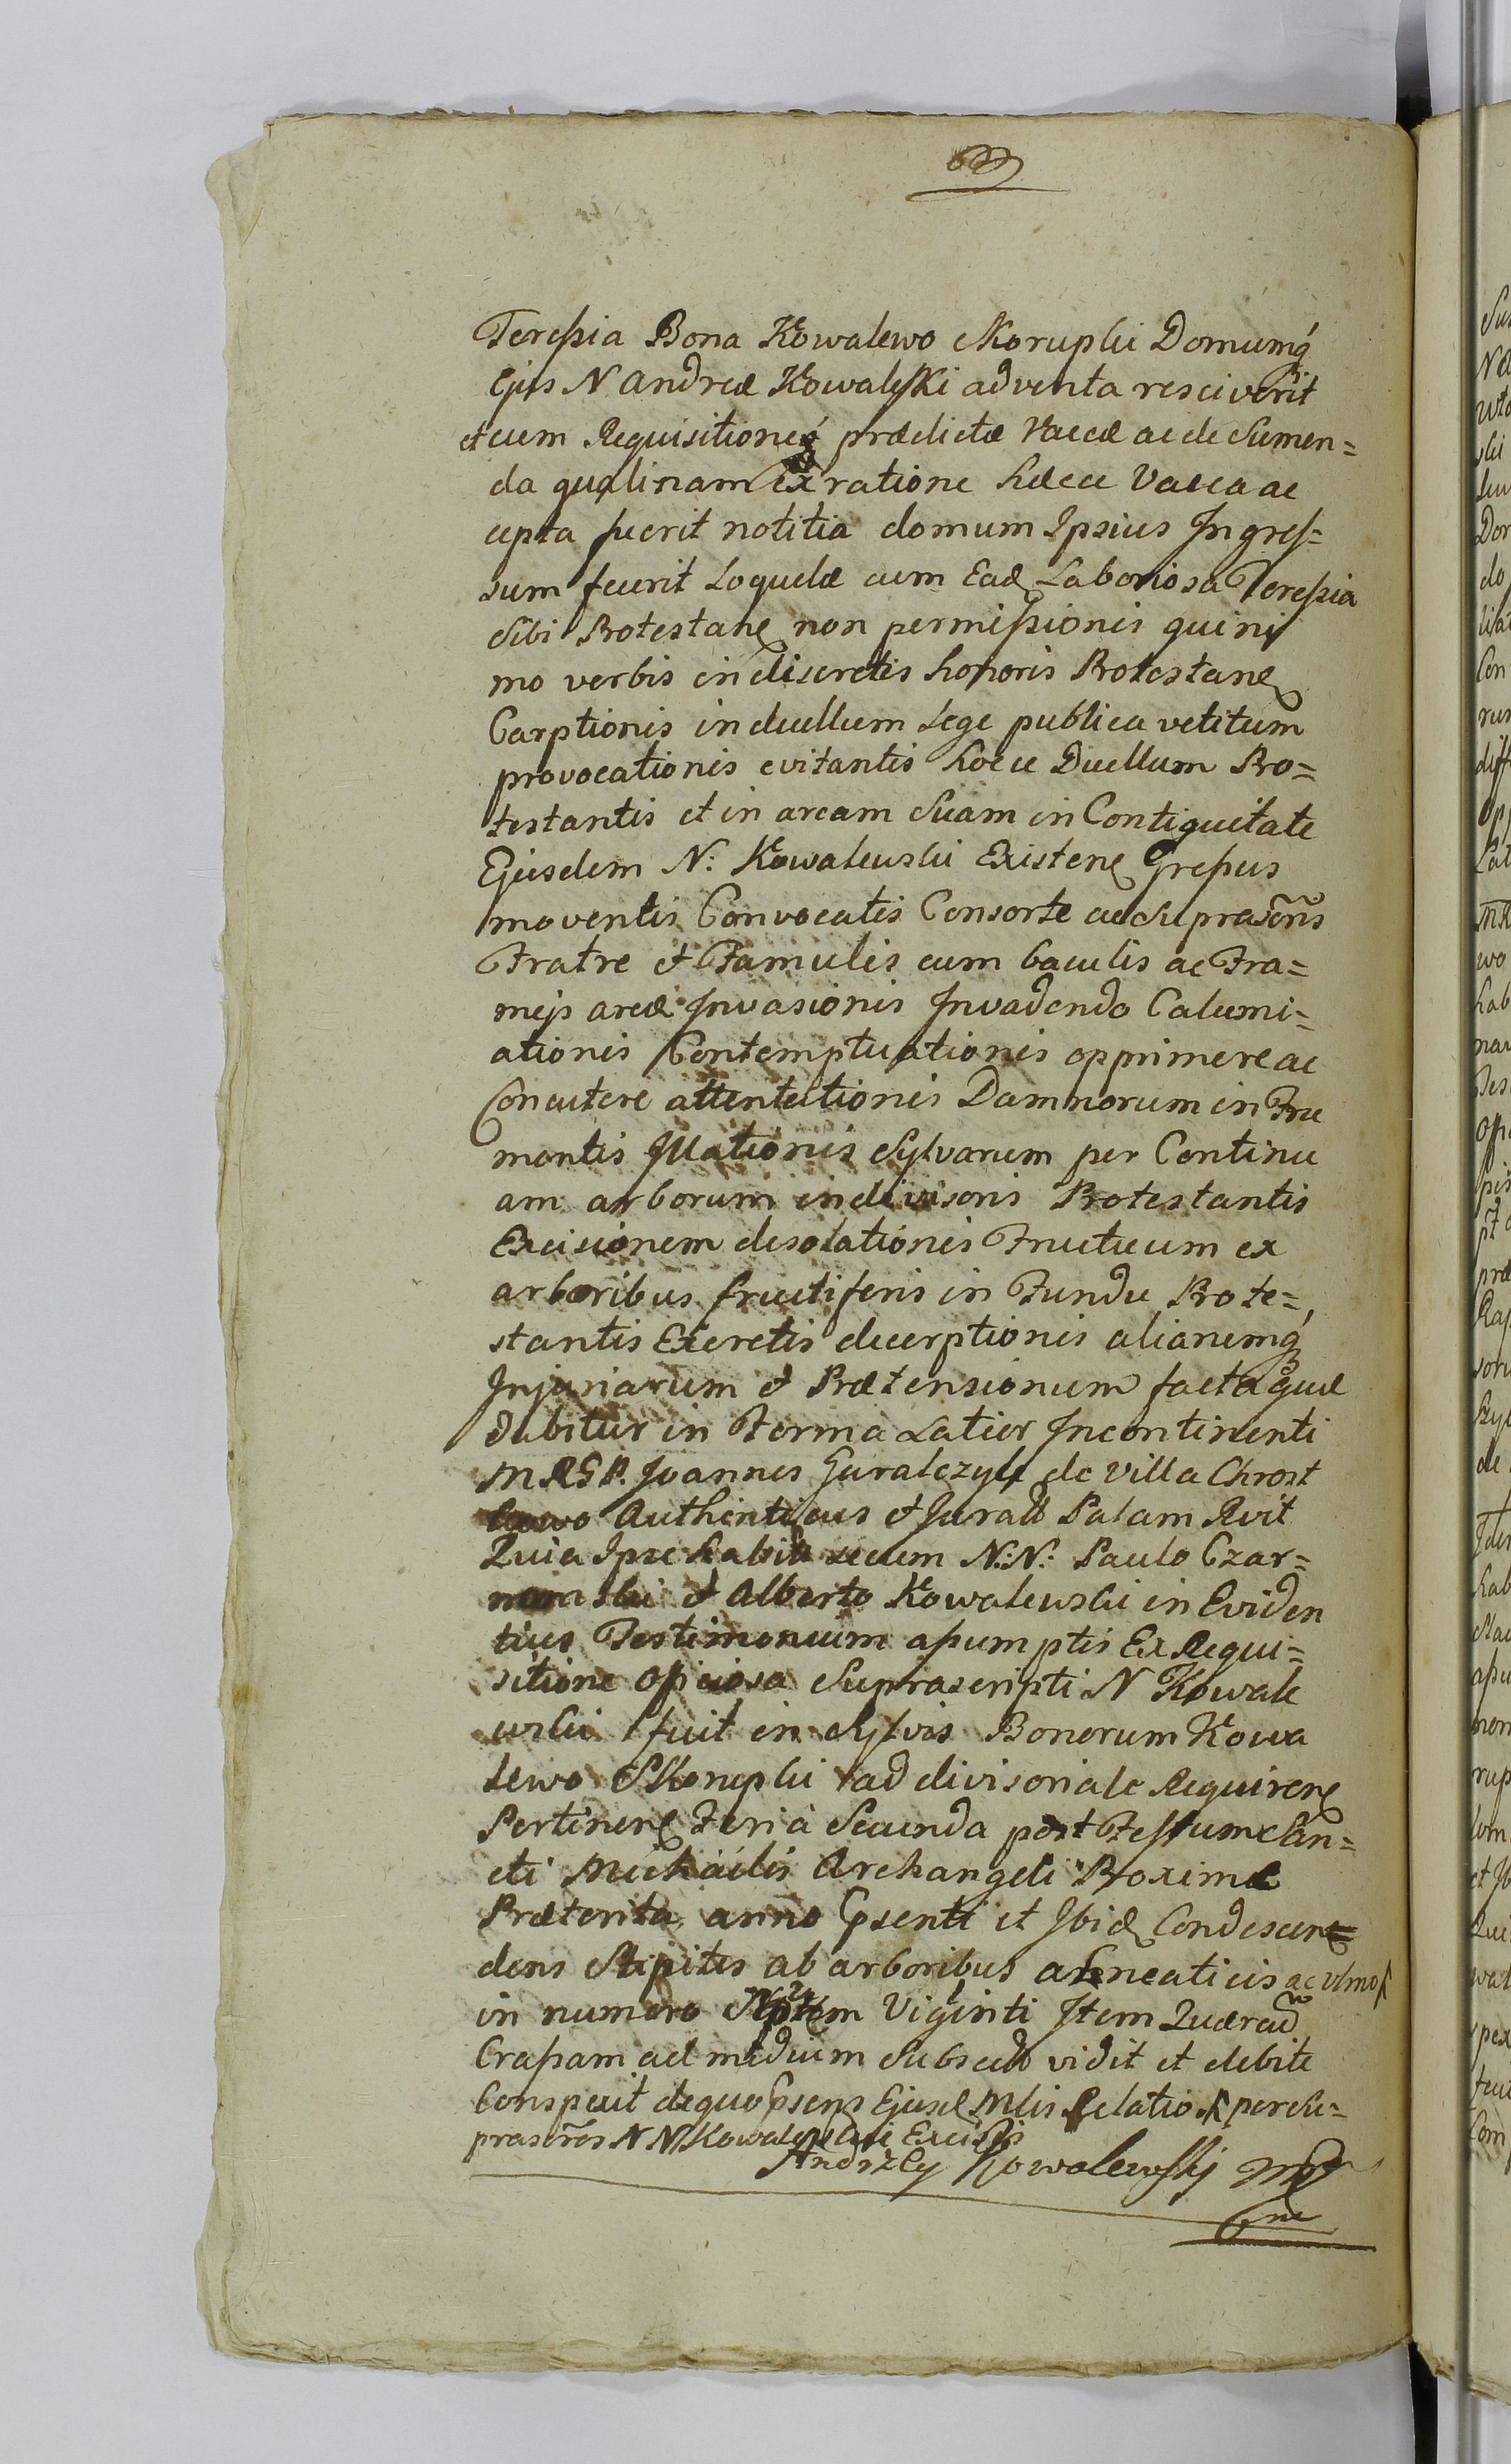 Teressia Bona Kowalewo Skorupki Domumq́
Ejus N Andreæ Kowalesski adventa resciverit
et cum Requisitioneq́ prædictæ Vaccæ ac de Sumen=
da qualinam ex ratione hæcce Vacca ac
cepta fuerit notitia domum Ipsius Ingres=
sum fecerit Loquelæ cum Ead Laboriosa Teressia
sibi Protestane non permissionis quini
mo verbis indiscretis honoris Protestane
Carptionis in duellum Lege publica vetitum
provocationis evitantis hocce Duellum Pro=
testantis et in aream Suam in Contiguitate
Ejusdem N: Kowalewski Existene Gressus
moventis Convocatis Consorte ac Suprascrñs
Fratre et Famulis cum baculis ac Fra=
meis areæ Invasionis Invadendo Calumi=
ationis Contemptuationis opprimere ac
Concutere attentationis Damnorum in Fru
mentis Illationis Sylvarum per Continu
am arborum indivisoris Protestantis
Excisionem desolationis Fructuum ex
arboribus fructiferis in Fundu Prote=
stantis Excretis decerptionis aliarumq́
Injuriarum et Prætensionum facta quæ
dabitur in Forma Latior Incontinenti
MRGP. Joannes Guralczyk de Villa Chrost
kowo Authenticus et Juratt Palam Rvit
Quia Ipse habitt secum N:N: Paulo Czar=
nomski et Alberto Kowalewski in Eviden
tius Testimonium assumptis Ex Requi=
sitione officiosa Suprascripti N Kowale
wski fuit in Sylvis Bonorum Kowa
lewo Skorupki ad divisoriale Requirene
Pertinene Feria Secunda post Festum San=
cti Michaëlis Archangeli Proxime
Præterita anno Psenti et Ibid Condescen=
dens Stipites ab arboribus alneaticis ac ulmos
in numero Viginti Item
Crassam ad medium Subsectt vidit et debite
Conspexit de quo Psens Ejusd Mlis Relatio per Su=
prascrños NN Kowalewski Excisis
Andrzey Kowalewsskj mp